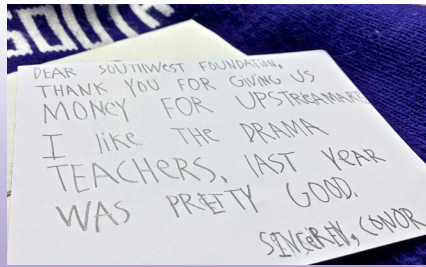 SOUTH
DEAR SOUTHWEST FOUNDATION,
THANK YOU FOR GIVING US
MONEY FOR UPSTREAMART.
I like THE DRAMA
TEACHERS, lAST YEAR
WAS PRETTY GOOD.
SINCEREly, CONOR